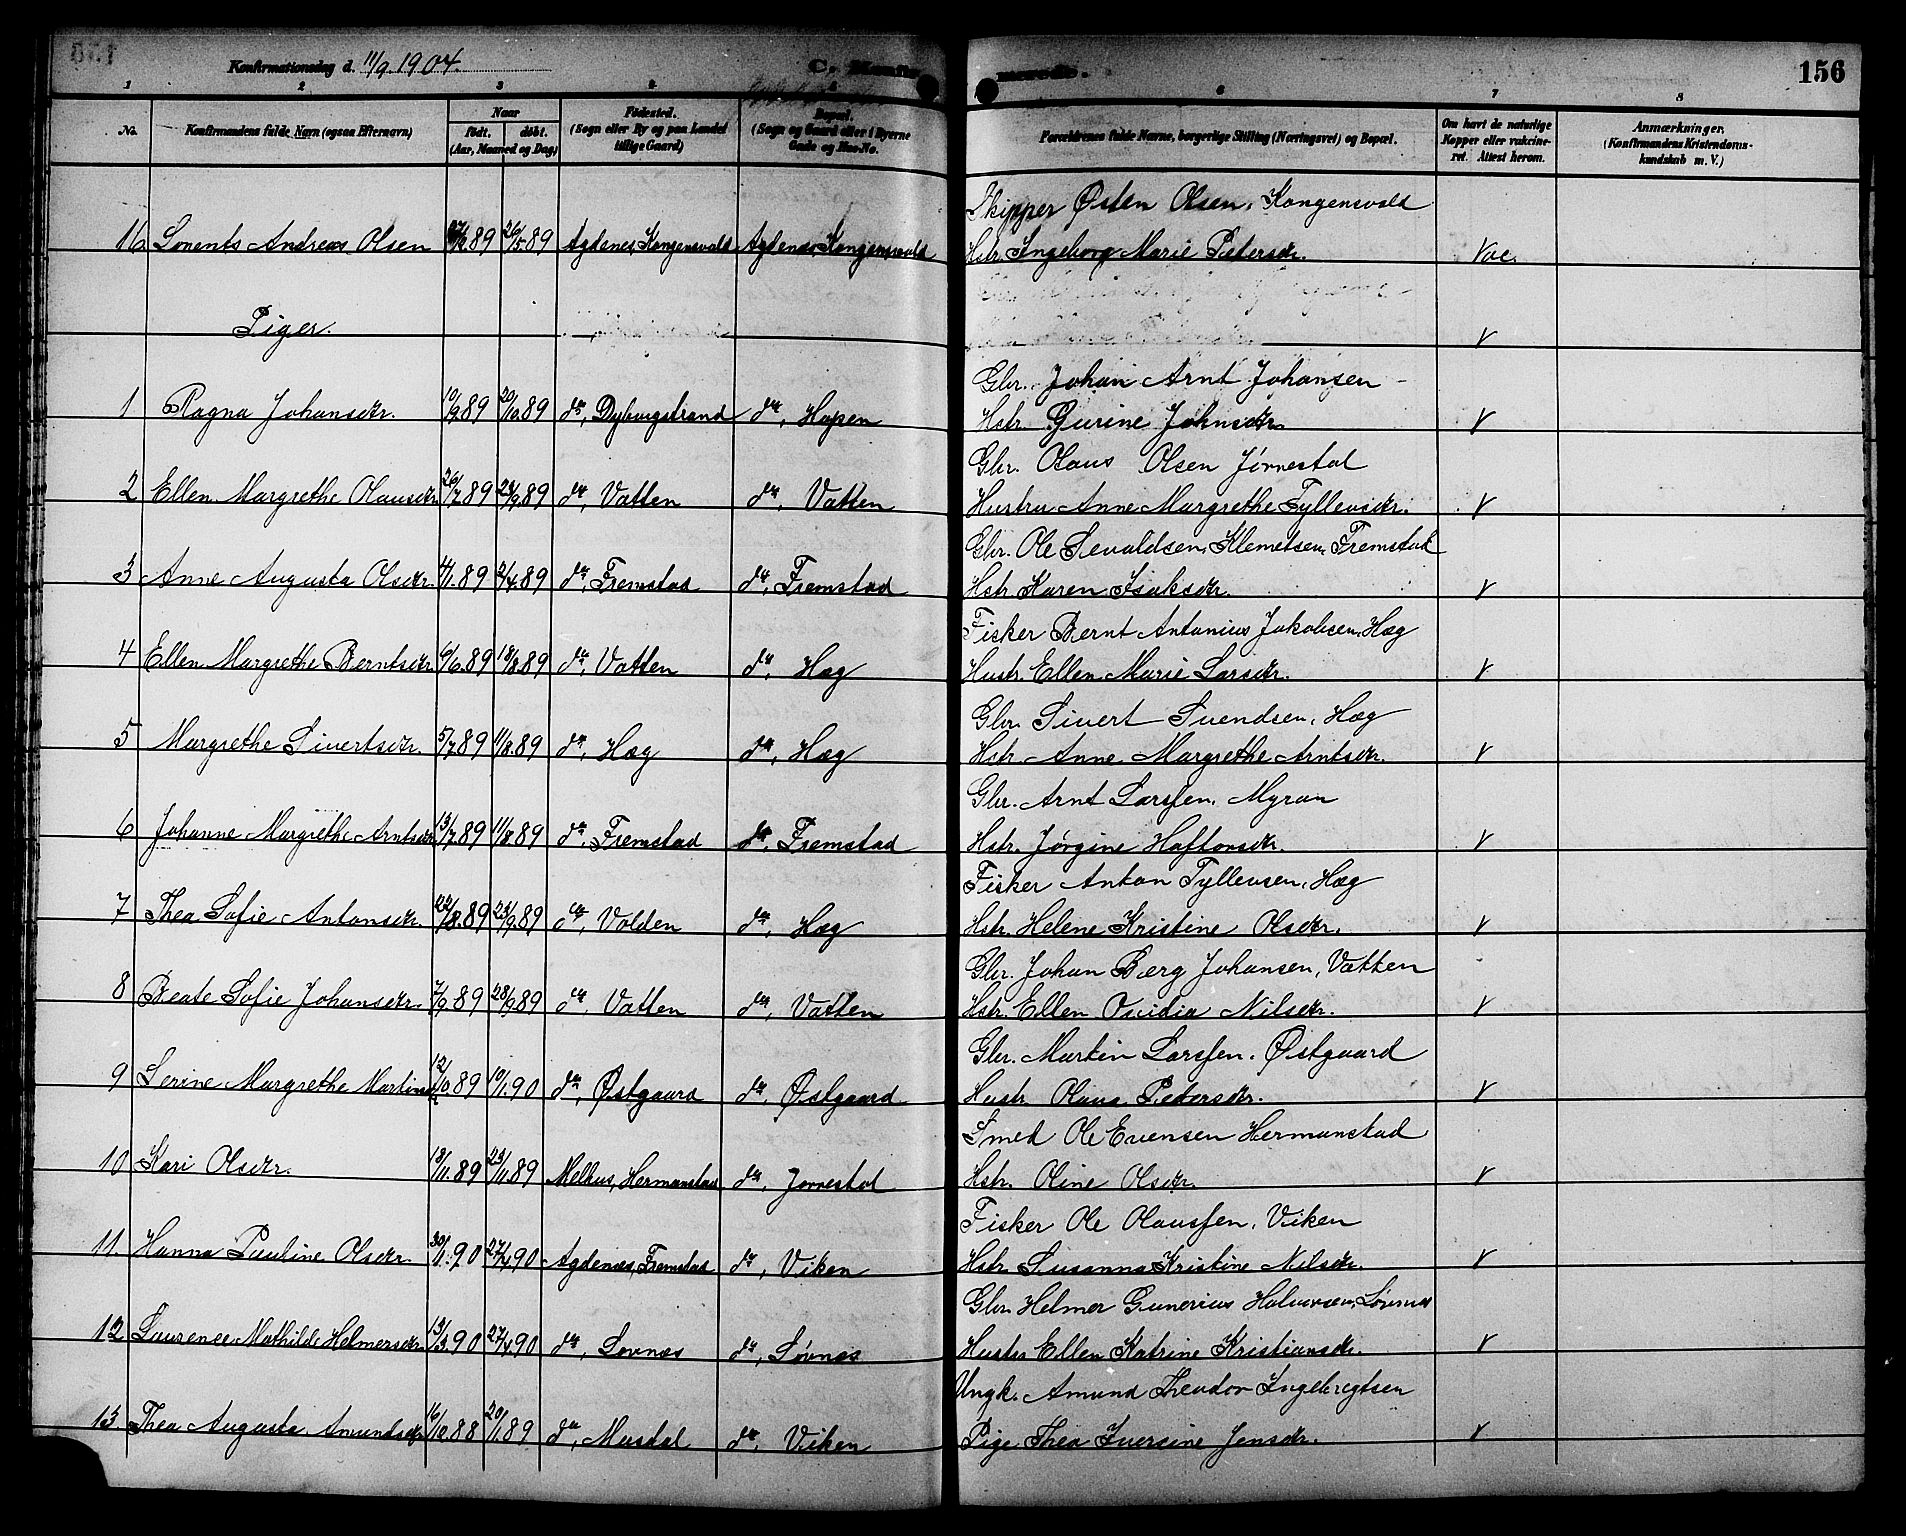 Konfirmationsdag d. 11/9 1904. C. Konfir merede. 156
1 2 3 4 5 6 7 8
No. Konfirmandens fulde Navn (ogsaa Efternavn) Naar født. døbt. (Aar, Maaned og Dag) Fødested. (Sogn eller By og paa Landet tillige Gaard) Bopæl. (Sogn og Gaard eller i Byerne Gade og Hus-No. Forældrenes fulde Navne, borgerlige Stilling (Næringsvei) og Bopæl. Om havt de naturlige Kopper eller vakcineret. Attest herom. Anmærkninger. (Konfirmandens Kristendomskundskab m. V.)
Skipper Østen Olsen, Kongensvold
16 Lorents Andreas Olsen 89 26/5 89 Agdenes, Kongensvold Agdenes, Kongensvold Hstr. Ingeborg Marie Petersdr. Vac.
Piger. V
Gbr. Johan Arnt Johansen
1 Ragna Johansdr. 10/9 89 20/10 89 do, Dyborgstrand do, Hopen Hstr. Gurine Johnsdr. V
Gbr. Olaus Olsen Jørnestol
2 Ellen Margrethe Olausdr. 26/7 89 29/9 89 do, Vatten do, Vatten Hustru Anne Margrethe Tyllevsdr. V
Gbr. Ole Sevaldsen Klemetsen, Fremstad
3 Anne Augusta Olsdr. 4/1 89 2/4 89 do, Fremstad do, Fremstad Hstr. Karen Isaksdr. V
Fisker Bernt Antonius Jakobsen, Hæg
4 Ellen Margrethe Berntsdr. 6/6 89 18/8 89 do, Vatten do, Hæg Hustr. Ellen Marie Larsdr. V
Gbr. Sivert Svendsen, Hæg
5 Margrethe Sivertsdr. 5/7 89 11/8 89 do, Hæg do, Hæg Hstr. Anne Margrethe Arntsdr. V
Gbr. Arnt Larssen, Myran
6 Johanne Margrethe Arntsdr. 13/7 89 11/8 89 do, Fremstad do, Fremstad Hstr. Jørgine Haftorsdr. V
Fisker Anton Tyllevsen, Hæg
7 Thea Sofie Antonsdr. 22/8 89 23/9 89 do, Volden do, Hæg Hstr. Helene Kristine Olsdr. V
Gbr. Johan Berg Johansen, Vatten
8 Beate Sofie Johansdr. 7/9 89 28/9 89 do, Vatten do, Vatten Hstr. Ellen Ovidia Nilsdr. V
Gbr. Martin Larssen, Østgaard
9 Serine Margrethe Martinsdr 12/10 89 10/1 90 do, Østgaard do, Østgaard Hustr. Olava Petersdr. V
Smed Ole Evensen Hermanstad
10 Kari Olsdr. 13/11 89 23/11 89 Melhus, Hermanstad do, Jørnestol Hstr. Oline Olsdr. V
Fisker Ole Olaussen, Viken
11. Hanna Pauline Olsdr. 30/1 90 27/4 90 Agdenes, Fremstad do, Viken Hstr. Susanna Kristine Nilsdr. V
Gbr. Helmer Gunerius Halvorsen, Løvnes
12 Laurense Mathilde Helmersdr. 13/3 90 27/4 90 do, Løvnæs do, Løvnæs Hustr. Ellen Katrine Kristiansdr. V
Ungk. Amund Theodor Ingebregtsen
13. Thea Augusta Amundsdr. 16/12 88 20/1 89 do, Mosdal do, Viken Pige Thea Iversine Jensdr. V